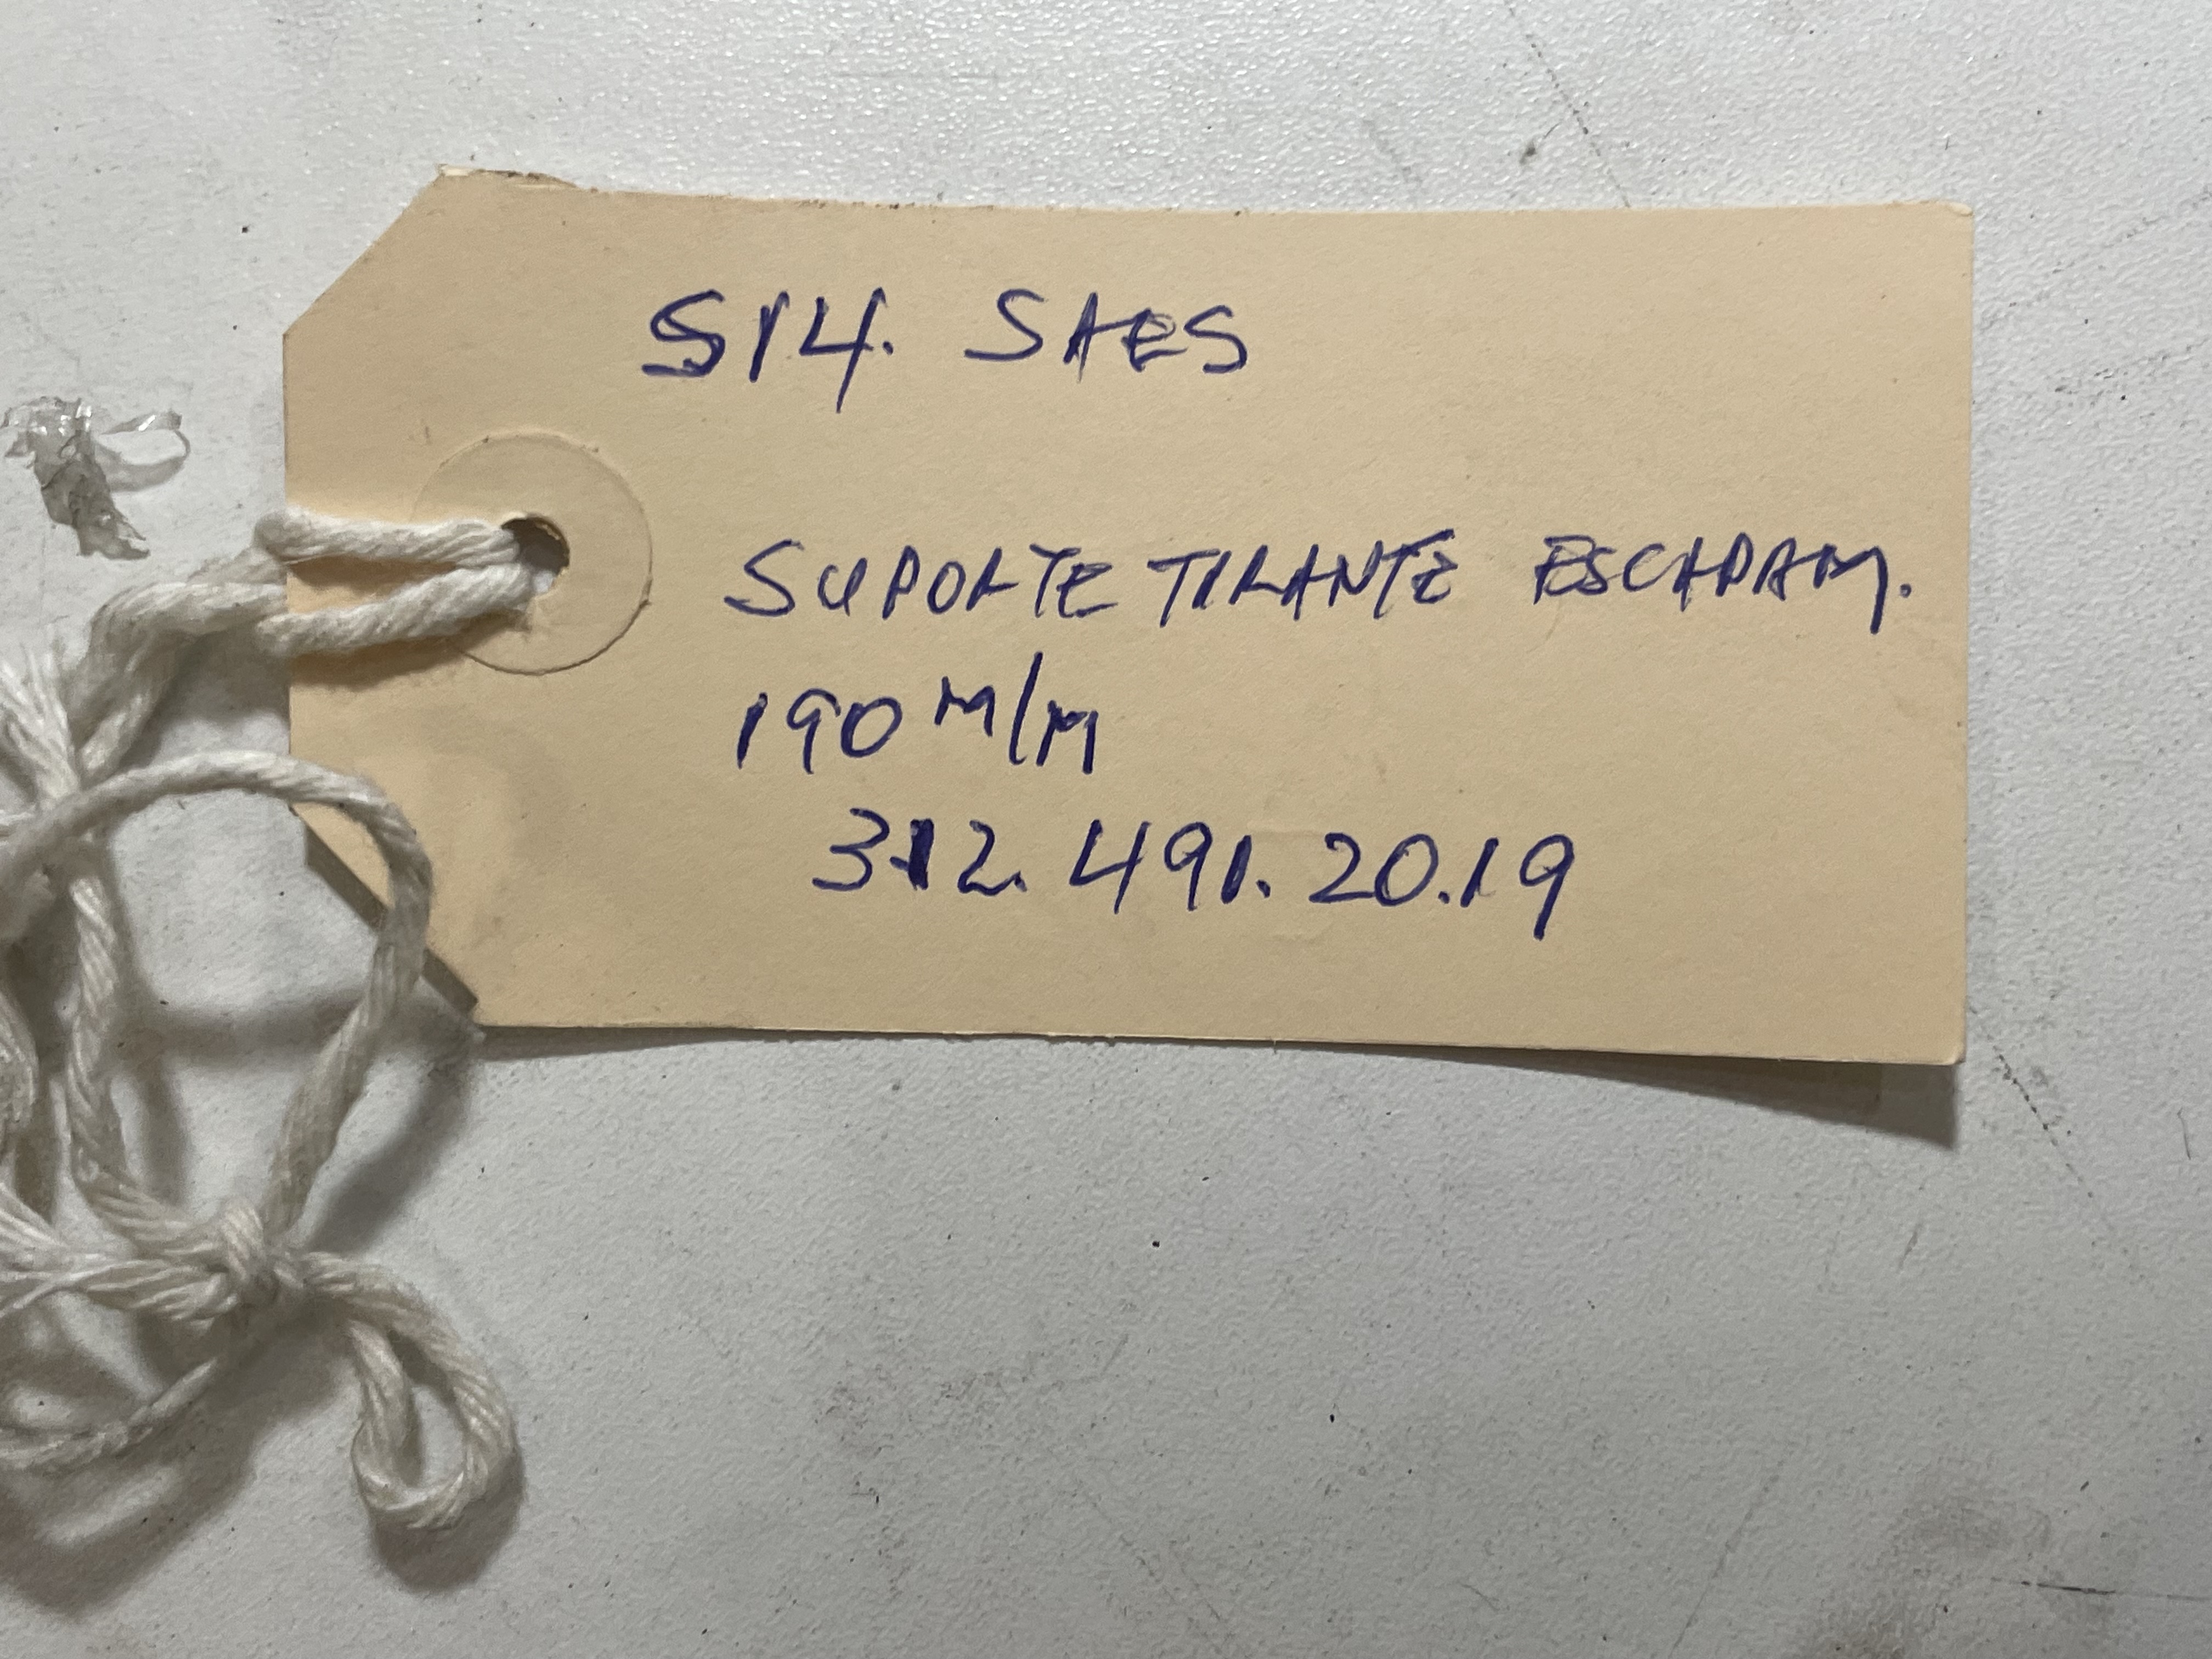 514. SAES
SUPORTE TIRANTE ESCAPAM.
190 M/M
312. 491. 20.19